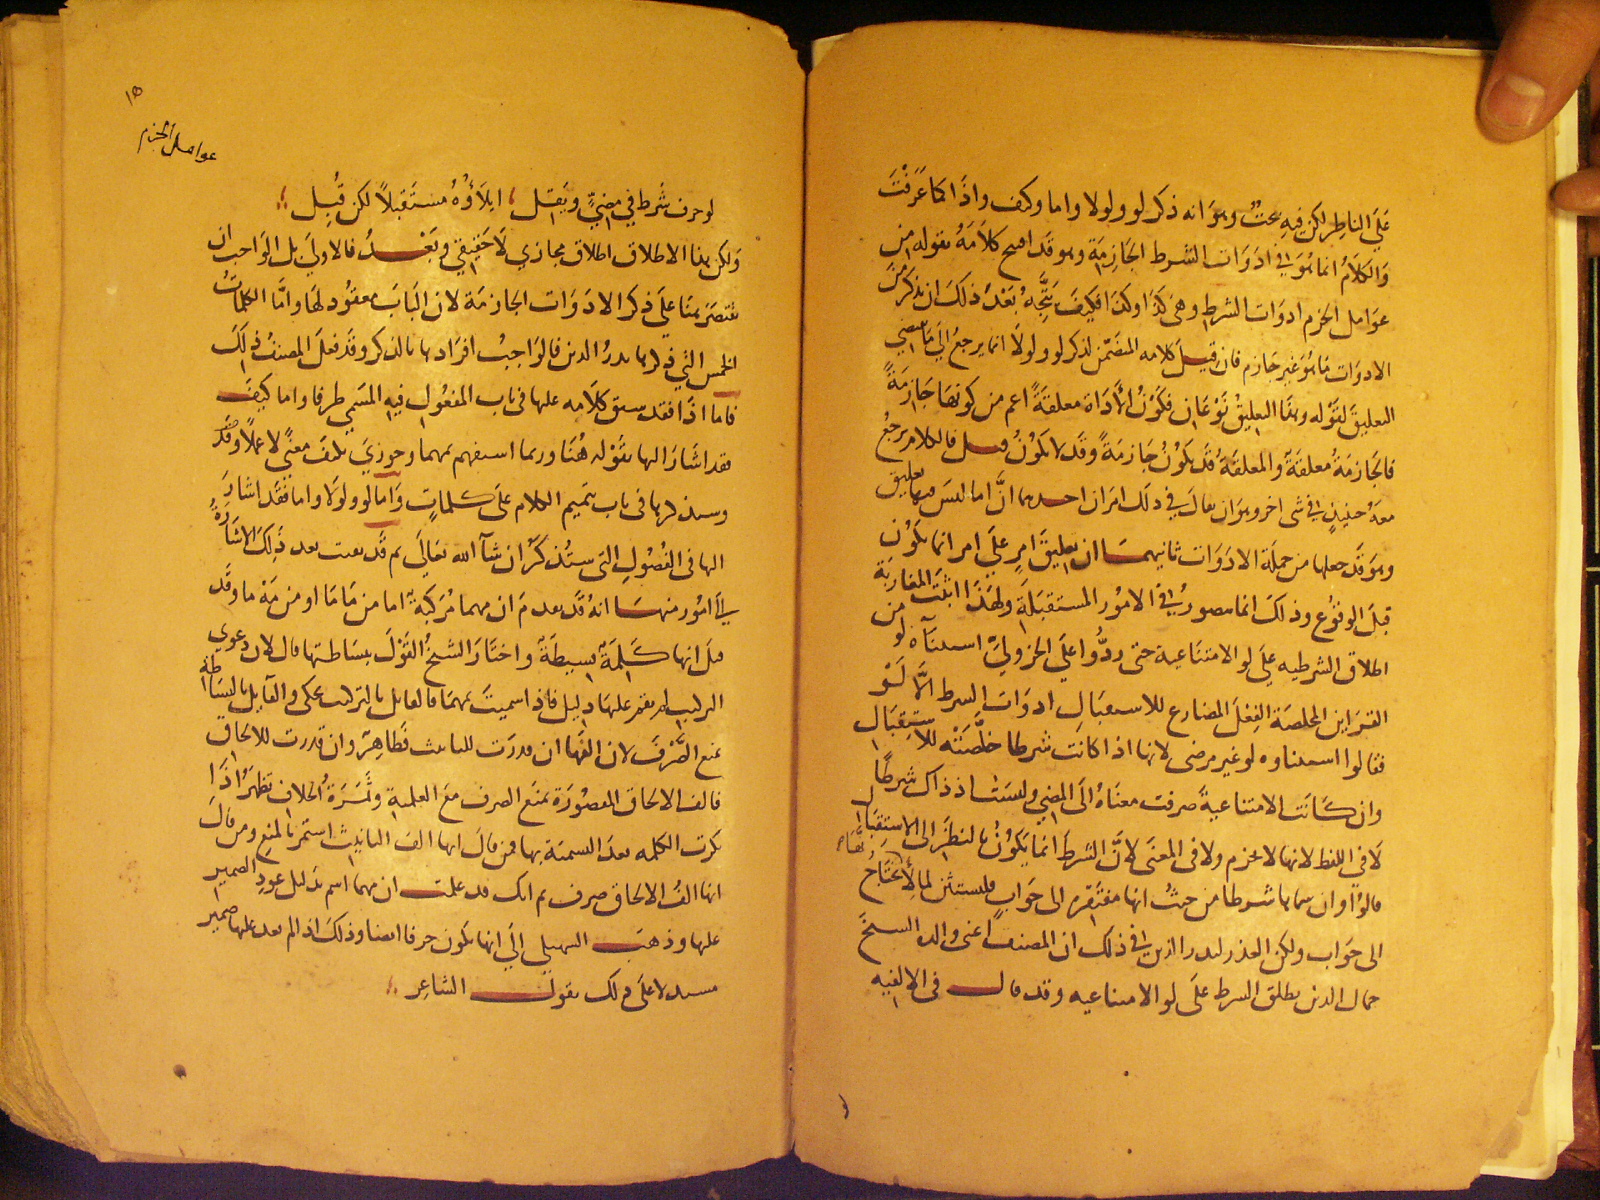 على الناظر لكن فيه بحث وهو انه ذكر لو ولولا واما وكيف واذا كما عرفت
والكلام انما هو في ادوات الشرط الجازمة وهو قد اصح كلامه بقوله من
عوامل الجزم ادوات الشرط وهى كذا وكذا فكيف يتجه بعد ذلك ان يذكر من
الادوات ما هو غير جازم فان قيل كلامه المتضمن لذكر لو ولولا انما يرجع الى ما مضى
التعليق لقوله وهذا التعليق نوعان فكون الأداة معلقة اعم من كونها جازمة
فالجازمة معلقة والمعلقة قد تكون جازمة وقد لا تكون قيل فالكلام يرجع
معه حينئذ في شى اخر وهو ان يقال في ذلك امران احدهما انَّ اما ليس فيها تعليق
وهو قد جعلها من جملة الادوات ثانيهما ان تعليق امر على امر انما يكون
قبل الوقوع وذلك انما يتصور في الامور المستقبلة ولهذا اثبت المغاربة
اطلاق الشرطيه على لو الامتناعية حتى ردُّوا على الجزولي استثناآه لو من
القراين المخلصة الفعل المضارع للاستقبال ادوات الشرط الَّا لَوْ
فقالوا استثناوه لو غير مرضى لانها اذا كانت شرطا خلَّصَتْه للاستقبال
وان كانت الامتناعية صرفت معناه الى المضي وليست اذ ذاك شرطاً
لا في اللفظ لانها لا تجزم ولا في المعنى لانَّ الشرط انما يكون بالنظر الى الاستقبال
قالوا وان سماها شرطا من حيث انها مفتقرة الى جواب فليستثن لما لأنها تحتاج
الى جواب ولكن العذر لبدر الدين في ذلك ان المصنف اعنى والده الشيخ
جمال الدين يطلق الشرط على لو الامتناعيه وقد قال في الالفيه
١٥
عوامل الجزم
لو حرف شرط في مضيٍّ ويقل ؛ ايلاؤه مستقبلاً لكن قُبِل
ولكن هذا الاطلاق اطلاق مجازي لا حقيقي وبَعْدُ فالاولي بل الواجب ان
يقتصر هنا على ذكر الادوات الجازمة لان الباب معقود لها واما الكلمات
الخمس التي ذكرها بدر الدين فالواجب افرادها بالذكر وقد فعل المصنف ذلك
فاما اذا فقد سبق كلامه عليها في باب المفعول فيه المسمى ظرفا واما كيف
فقد اشار اليها بقوله هنا وربما استفهم بمهما وجوزي بكيف معنًى لا عملاً
وسيذكرها في باب تتميم الكلام على كلمات واما لو ولولا واما فقد اشار
اليها في الفصول التي ستُذكر ان شآ الله تعالي ثم قد بقيت بعد ذلك الاشارة
الى امور منها انه قد تقدم ان مهما مركبة اما من ماما او من مَهْ ما وقد
قيل انها كلمة بسيطة واختار الشيخ القول ببساطتها قال لان دعوي
التركيب لم يقم عليها دليل فاذا سميت بمهما فالقايل بالتركيب يحكى والقايل بالبساطة
يمنع الصَّرْفَ لان الفها ان قدرت للتانيث فظاهر وان قدرت للالحاق
فالف الالحاق المقصورة تمنع الصرف مع العلمية وثَمَرَةُ الخلاف تظهر اذا
نكرت الكلمه بعد التسمية بها فمن قال انها الف التانيث استمر بالمنع ومن قال
انها الف الالحاق صرف ثم انك قد علمت ان مهما اسم بدليل عود الضمير
عليها وذهب السهيلي الي انها تكون حرفا ايضا وذلك اذا لم يعد عليها ضمير
مستدلا على ذلك بقول الشاعر